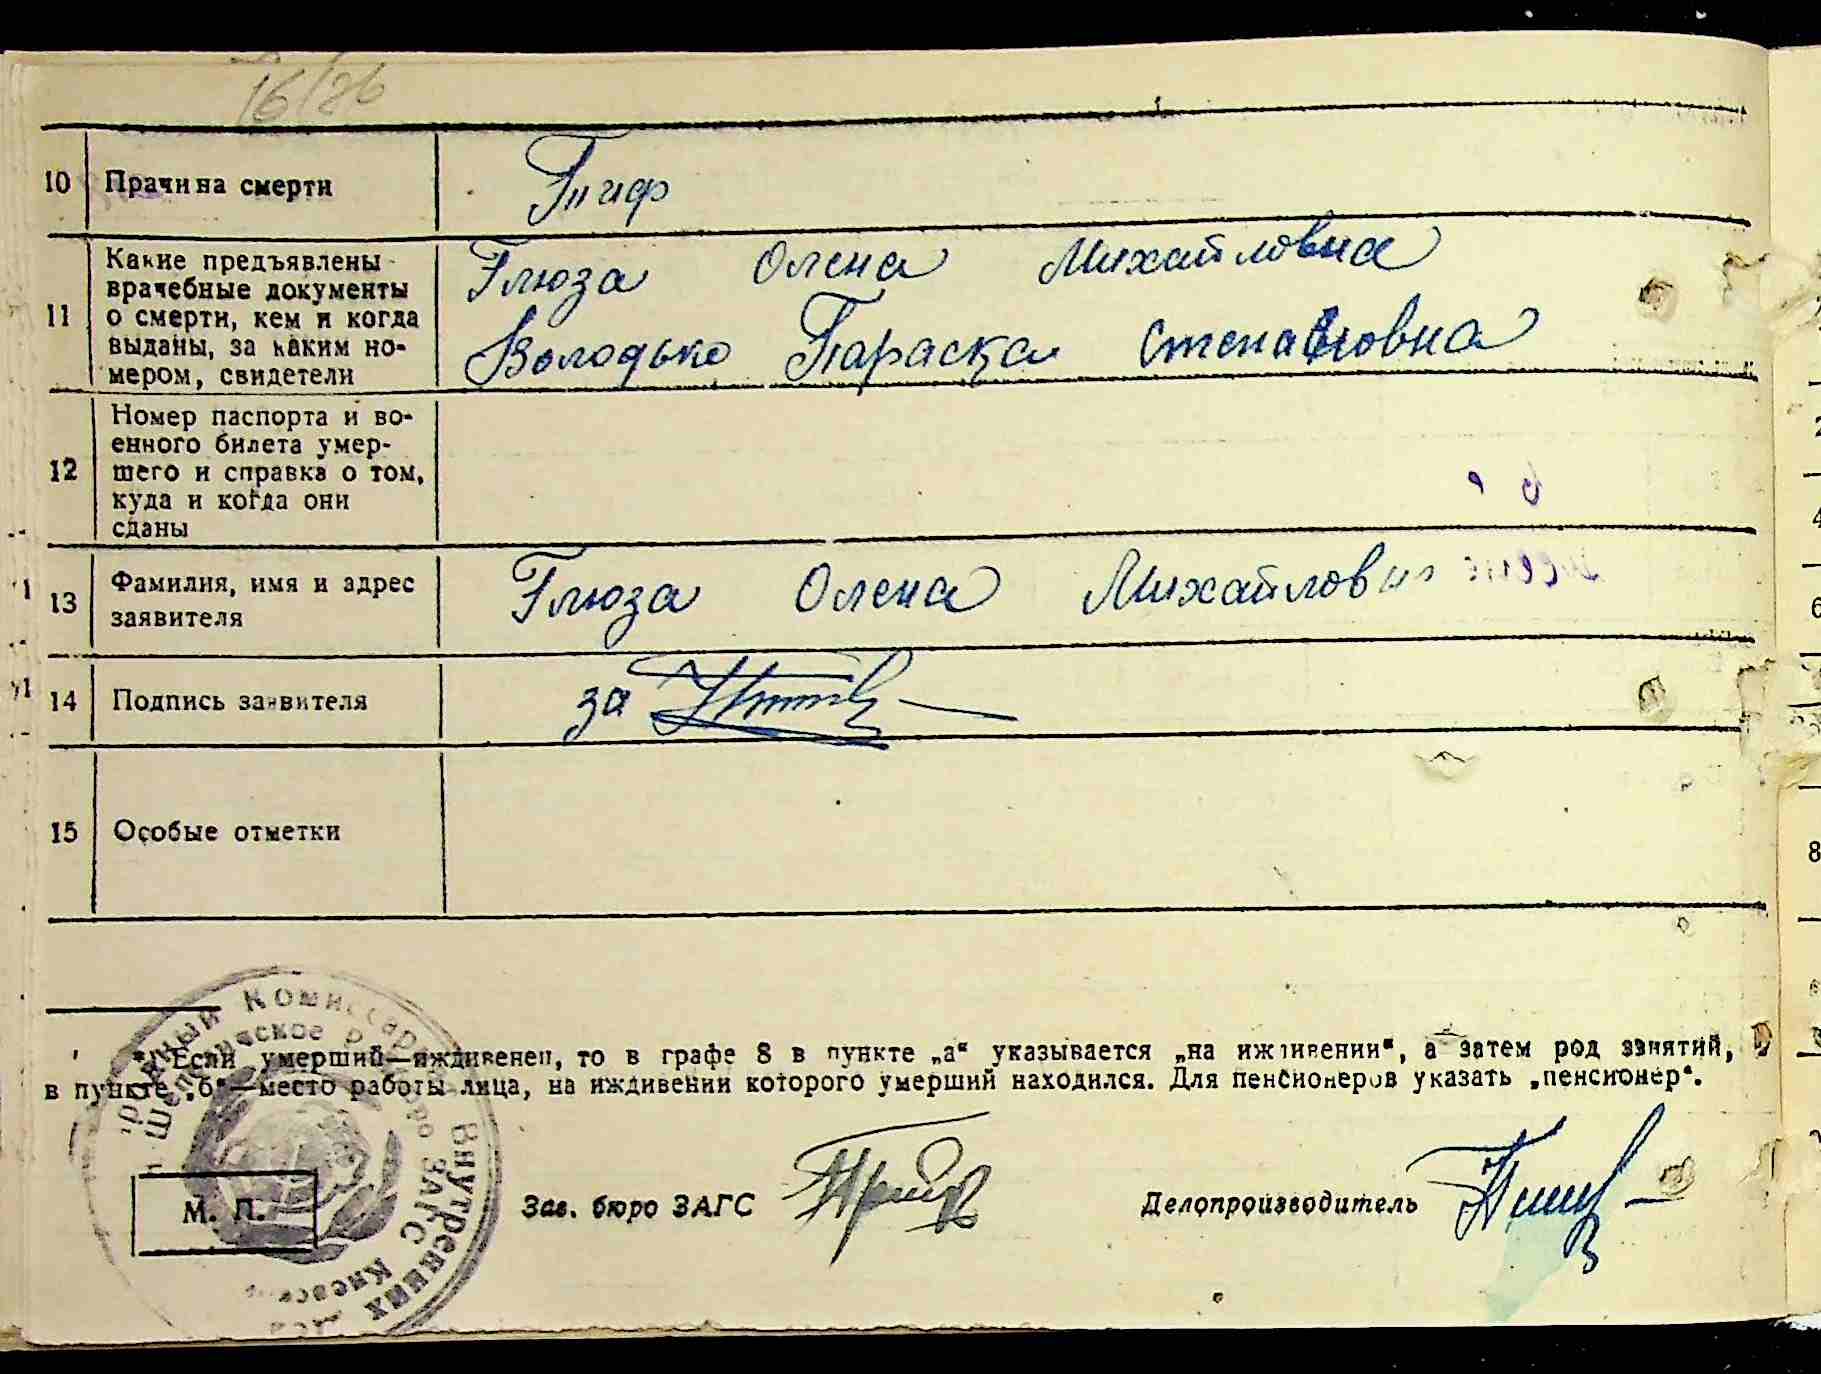 16/26
10 Прачина смерти Тиф
11 Какие предъявлены Глюза Олена Михайловна
врачебные документы
о смерти, кем и когда Володько Параска Степановна
выданы, за каким но-
мером, свидетели
12 Номер паспорта и во-
енного билета умер-
шего и справка о том,
куда и когда они
сданы
13 Фамилия, имя и адрес Глюза Олена Михайловна
заявителя
14 Подпись заявителя за
15 Особые отметки
* Если умерший—иждивенец, то в графе 8 в пункте „а“ указывается „на иждивении“, а затем род занятий,
в пункте „б“—место работы лица, на иждивении которого умерший находился. Для пенсионеров указать „пенсионер“.
М. П. Зав. бюро ЗАГС Делопроизводитель
Комиссар Внутренних
бюро ЗАГС Киевск